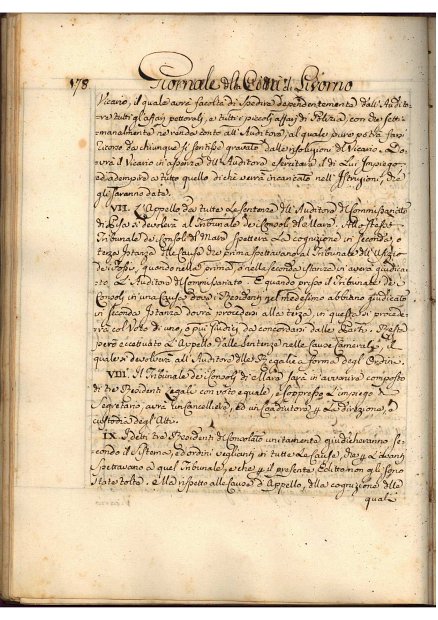 178 Giornale della Città di Livorno
Vicario, il quale avrà facoltà di spedire dependentemente dall'Audito
re tutti gl'affari pettorali, e tutti i piccoli affari di Polizia, con che setti
manalmente ne renda conto all'Auditore, al quale pure potrà farsi
ricorso da chiunque si sentisse gravato dalle risoluzioni del Vicario. Do
vrà il Vicario in assenza dell'Auditore esercitare il di Lui Impiego
ed adempire a tutto quello di che verrà incaricato nell'Istruzioni, che
gli saranno date.
VII. L'Appello da tutte le sentenze dell'Auditore di Commissariato
di Pisa si devolverà al Tribunale dei Consoli di Mare. Allo stesso
Tribunale dei Consoli di Mare spetterà la cognizione in seconda, o
terza Istanza delle Cause che prima spettavano al Tribunale dell'Uffizio
dei Fossi, quando nella prima, o nella seconda istanza vi averà giudica
to L'Auditore di Commissariato. E quando presso il Tribunale dei
Consoli in una Causa due Presidenti nel medesimo abbiano giudicato
in seconda Istanza dovrà procedersi alla terza, in questa si procede
rà col Voto di uno, o più Giudici da concordarsi dalle Parti. Resta
però eccettuato L'Appello dalle sentenze nelle Cause Camerali, il
quale si devolverà all'Auditore delle Regalie a forma degli Ordini.
VIII. Il Tribunale dei Consoli di Mare sarà in avvenire composto
di tre Presidenti Legali con voto eguale, e soppresso L'impiego di
Segretario, avrà un Cancelliere, ed un Coadiutore per La direzione, e
custodia degli Atti.
IX. I detti tre Presidenti di Consolato unitamente giudicheranno se
condo il Sistema, ed ordini veglianti in tutte Le Cause, che per L'avanti
spettavano a quel Tribunale, e che per il presente Editto non gli sono
state tolte. Ma rispetto alle Cause d'Appello, della cognizione delle
quali